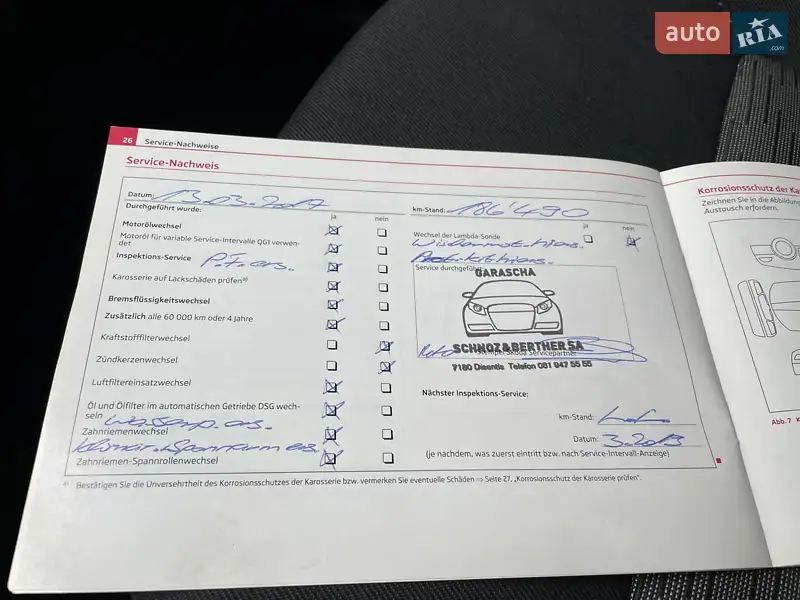 auto RIA .com
26 Service-Nachweise
Service-Nachweis
Datum: 13.03.2017
km-Stand: 186'490
Durchgeführt wurde:
ja nein
Motorölwechsel
Motoröl für variable Service-Intervalle QG1 verwen-
det
Inspektions-Service
Karosserie auf Lackschäden prüfena)
Bremsflüssigkeitswechsel
Zusätzlich alle 60 000 km oder 4 Jahre
Kraftstofffilterwechsel
Zündkerzenwechsel
Luftfiltereinsatzwechsel
Öl und Ölfilter im automatischen Getriebe DSG wech-
seln
Zahnriemenwechsel
Zahnriemen-Spannrollenwechsel
ja nein
Wechsel der Lambda-Sonde
Service durchgeführt
GARASCHA
SCHNOZ & BERTHER SA
Stempel Škoda Servicepartner
7180 Disentis Telefon 081 947 55 55
Nächster Inspektions-Service:
km-Stand:
Datum:
(je nachdem, was zuerst eintritt bzw. nach Service-Intervall-Anzeige)
a) Bestätigen Sie die Unversehrtheit des Korrosionsschutzes der Karosserie bzw. vermerken Sie eventuelle Schäden ⇒ Seite 27, „Korrosionsschutz der Karosserie prüfen“.
Korrosionsschutz der Ka
Zeichnen Sie in die Abbildung
Austausch erfordern.
Abb. 7 K